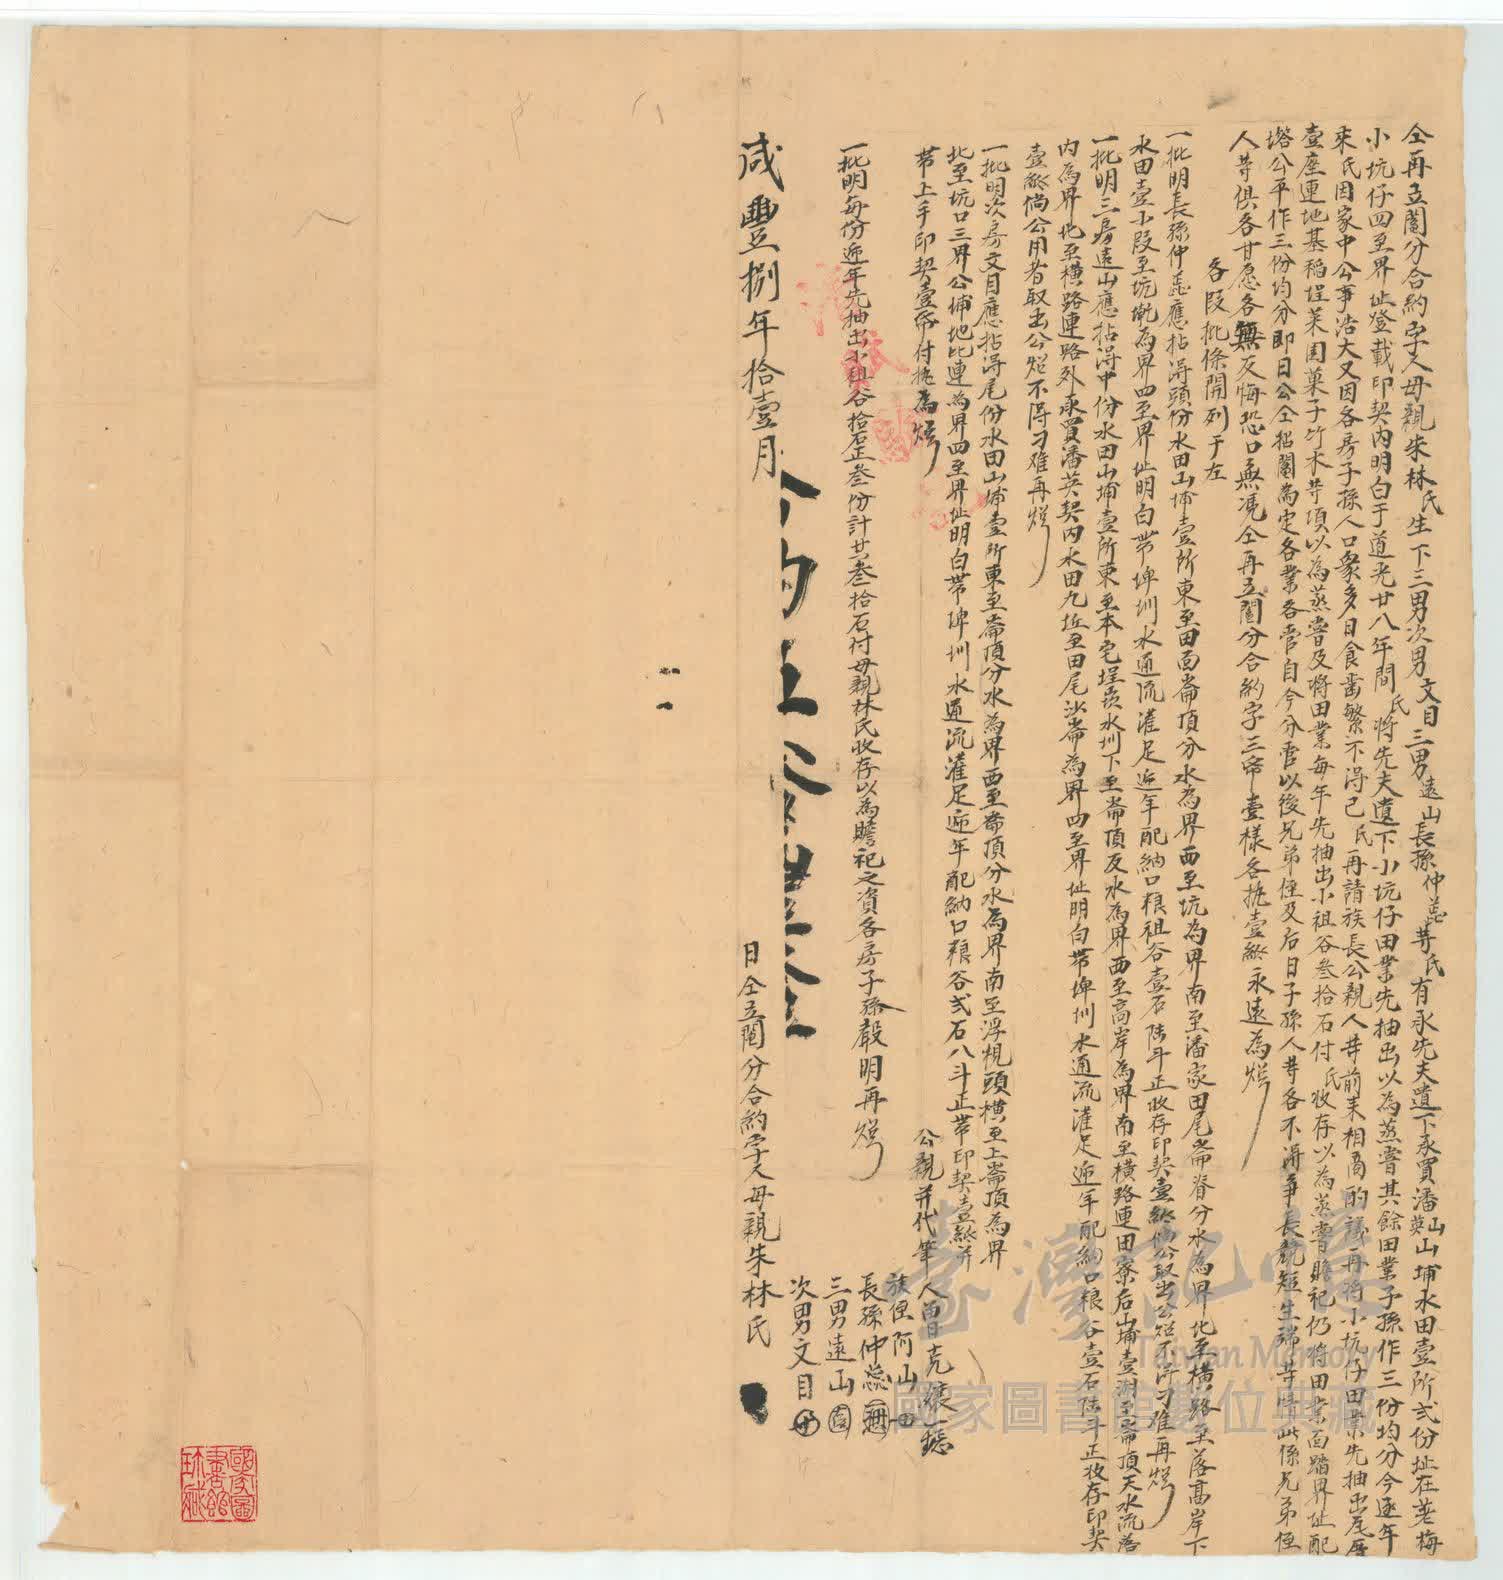 仝再立鬮分合約字人母親朱林氏生下三男次男文目三男遠山長孫仲蕋等氏有承先夫遺下承買潘英山山埔水田壹所弍份址在老梅
小坑仔四至界址登載印契內明白于道光廿八年間氏將先夫遺下小坑仔田業先抽出以為蒸嘗其餘田業子孫作三份均分今逐年
來氏因家中公事浩大又因各房子孫人口衆多日食甾繁不得已氏再請族長公親人等前來相商酌議再將小坑仔田業先抽出尾厝
壹座連地基稻埕菜園菓子竹木等項以為蒸嘗及將田業每年先抽出小租谷叁拾石付氏收存以為蒸嘗贍祀仍將田業面踏界址配
搭公平作三份均分即日公仝拈鬮為定各業各管自今分管以後兄弟侄及后日子孫人等各不得爭長競短生端等情此係兄弟侄
人等俱各甘愿各無反悔恐口無憑仝再立鬮分合約字三帋壹樣各执壹紙永遠為炤
各段批條開列于左
一批明長孫仲蕋應拈得頭份水田山埔壹所東至田面崙頂分水為界西至坑為界南至潘家田尾崙脊分水為界北至橫路至落高岸下
水田壹小段至坑墘為界四至界址明白帶埤圳水通流灌足逐年配納口粮租谷壹石陆斗正收存印契壹紙倘公取出公炤不得刁难再炤
一批明三房遠山應拈得中份水田山埔壹所東至本宅埕崁水圳下至崙頂反水為界西至高岸為界南至橫路連田寮后山埔壹湖至崙頂天水流落
內為界北至橫路連路外承買潘英契內水田九坵至田尾沙崙為界四至界址明白帶埤圳水通流灌足逐年配納口粮谷壹石陆斗正收存印契
壹紙倘公用者取出公炤不得刁难再炤
一批明次房文目應拈得尾份水田山埔壹所東至崙頂分水為界西至崙頂分水為界南至浮梘頭橫至上崙頂為界
北至坑口三界公埔地比連為界四至界址明白帶埤圳水通流灌足逐年配納口粮谷弍石八斗正帶印契壹紙并
帶上手印契壹帋付执為炤
一批明每份逐年先抽出小租谷拾石正叁份計共叁拾石付母親林氏收存以為贍祀之資各房子孫聲明再炤
公親并代筆人曾克讓
族侄阿山
長孫仲蕋
三男遠山
次男文目
咸豐捌年拾壹月　日仝立鬮分合約字人母親朱林氏
臺灣記憶
Taiwan Memory
國家圖書館數位典藏
國家圖
書館
珍藏